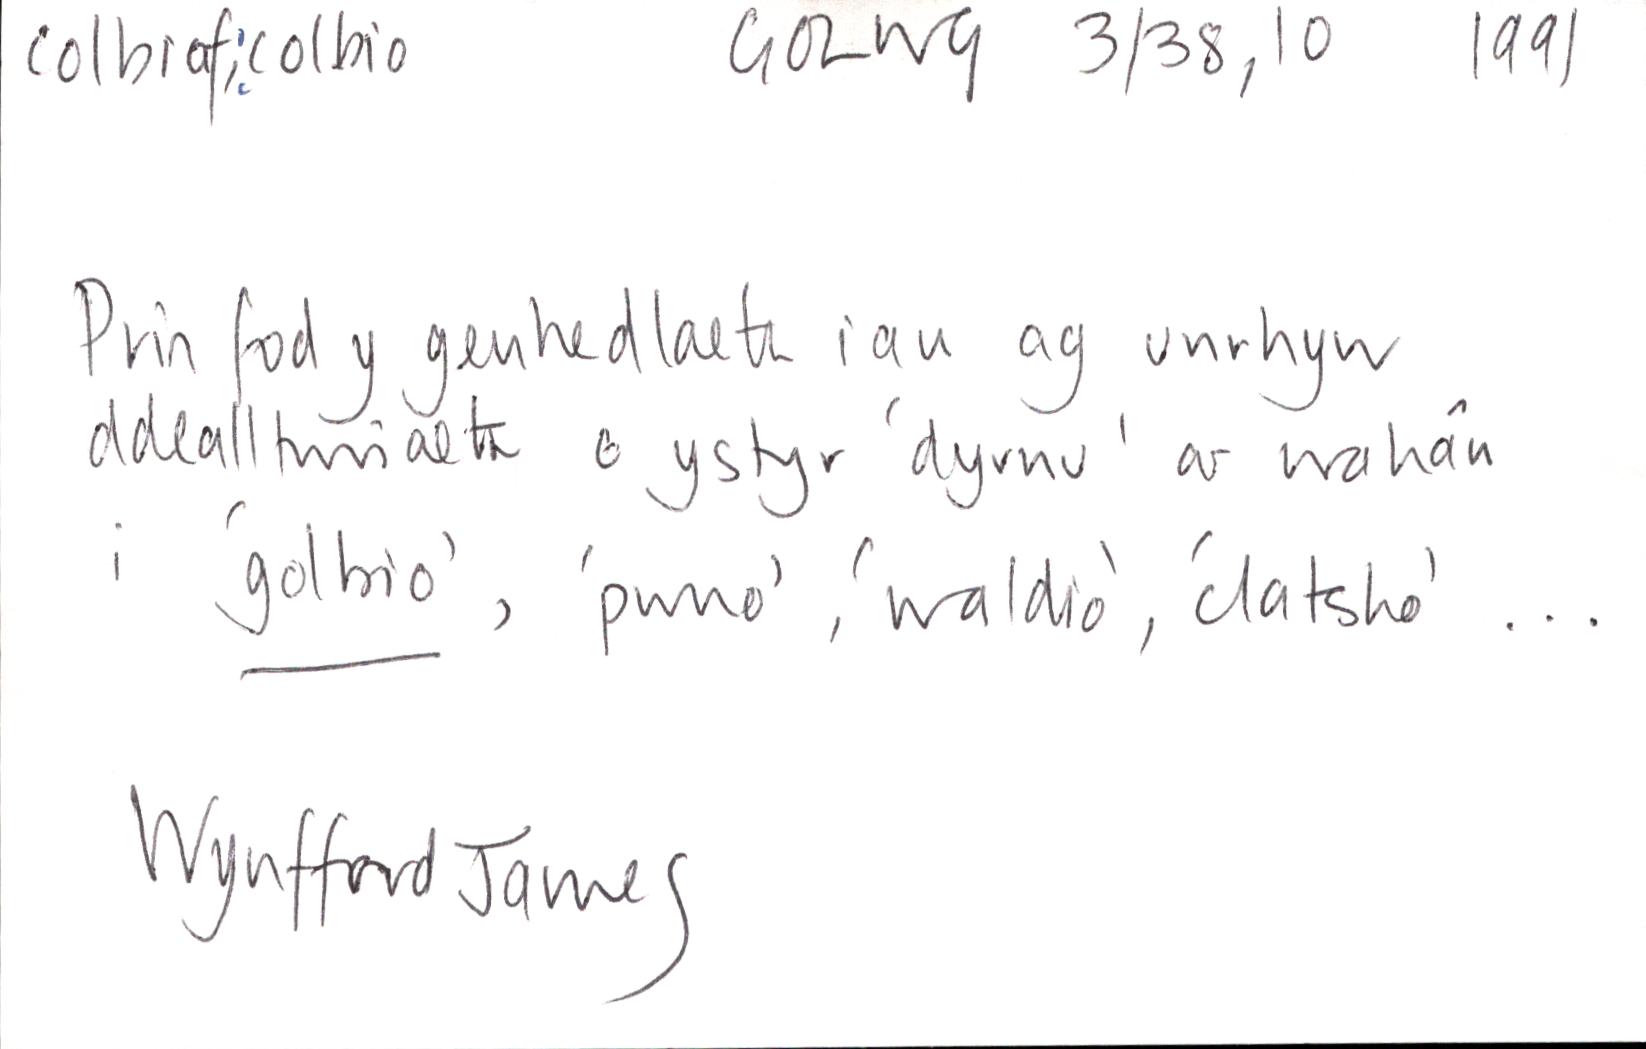 colbiaf:colbio GOLWG 3/38,10 1991
Prin fod y genhedlaeth iau ag unrhyw
ddealltwriaeth o ystyr 'dyrnu' ar wahân
i 'golbio', 'pwno', 'waldio', 'clatsho' ...
Wynfford James